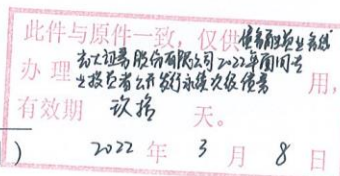 此件与原件一致,仅供债券融资业务线
办理光大证券股份有限公司2022年面向专
业投资者公开发行永续次级债券用,
有效期 玖拾 天。
) 2022 年 3 月 8 日